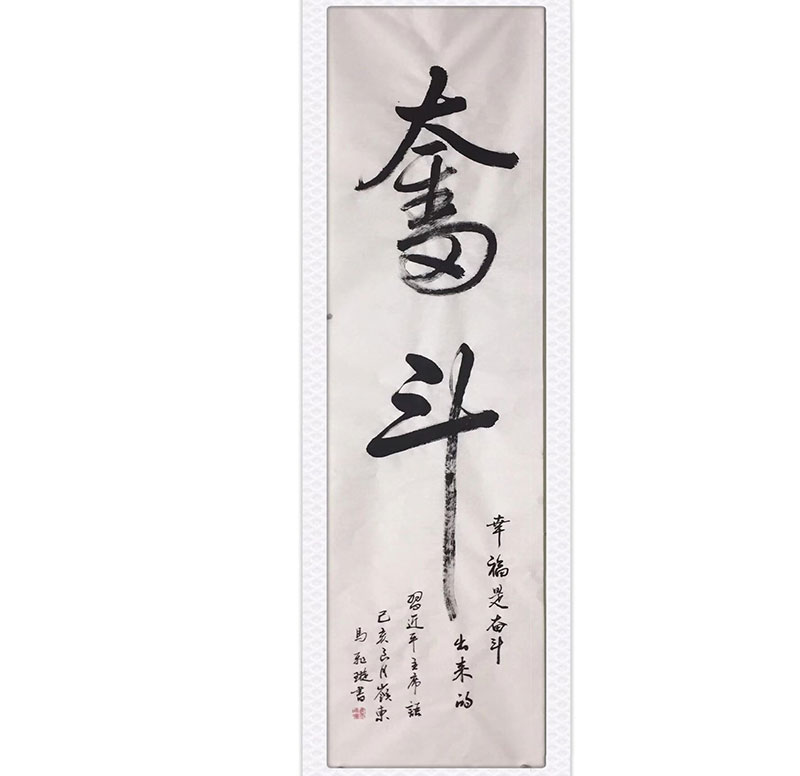 奮斗
幸福是奋斗
出来的
習近平主席語
己亥正月嶺東
馬
璇書